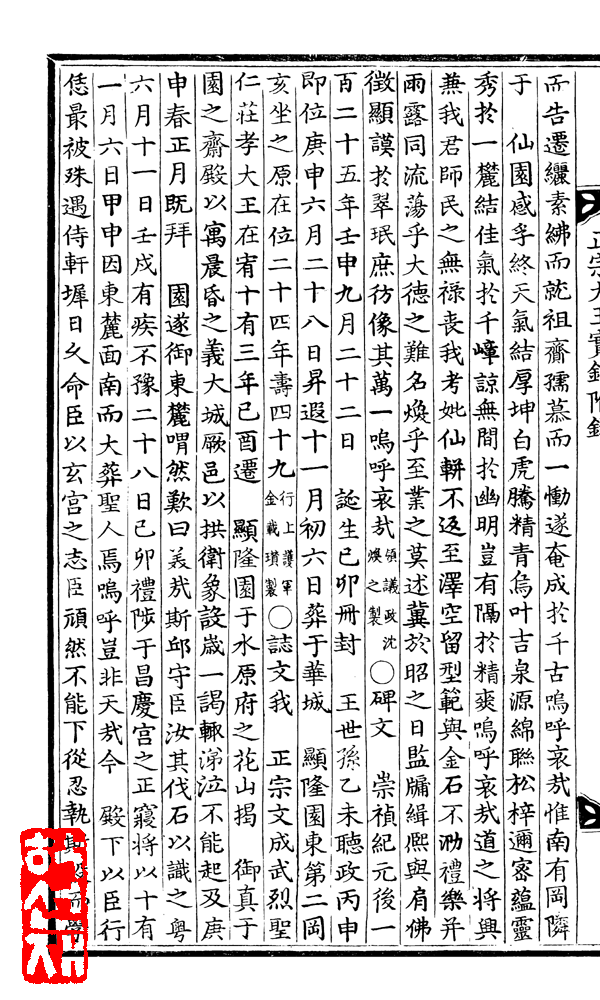 正宗大王實錄附錄
而告遷纚素紼而就祖齋孺慕而一慟遂奄成於千古嗚呼哀哉惟南有岡隣
于 仙園感孚終天氣結厚坤白虎騰精青烏叶吉泉源綿聯松梓邇密蘊靈
秀於一麓結佳氣於千嶂諒無間於幽明豈有隔於精爽嗚呼哀哉道之將興
兼我君師民之無祿喪我考妣仙輧不返至澤空留型範與金石不泐禮樂幷
雨露同流蕩乎大德之難名煥乎至業之莫述冀於昭之日監牖緝熙與肩佛
徵顯謨於翠珉庶彷像其萬一嗚呼哀哉領議政沈煥之製○碑文 崇禎紀元後一
百二十五年壬申九月二十二日 誕生己卯冊封 王世孫乙未聽政丙申
卽位庚申六月二十八日昇遐十一月初六日葬于華城 顯隆園東第二岡
亥坐之原在位二十四年壽四十九行上護軍金載瓚製○誌文我 正宗文成武烈聖
仁莊孝大王在宥十有三年己酉遷 顯隆園于水原府之花山揭 御真于
園之齋殿以寓晨昏之義大城厥邑以拱衛象設歲一謁輒涕泣不能起及庚
申春正月既拜 園遂御東麓喟然歎曰美哉斯邱守臣汝其伐石以識之粤
六月十一日壬戌有疾不豫二十八日己卯禮陟于昌慶宮之正寢將以十有
一月六日甲申因東麓面南而大葬聖人焉嗚呼豈非天哉今 殿下以臣行
恁最被珠遇侍軒墀日久命臣以玄宮之志臣頑然不能下從忍執